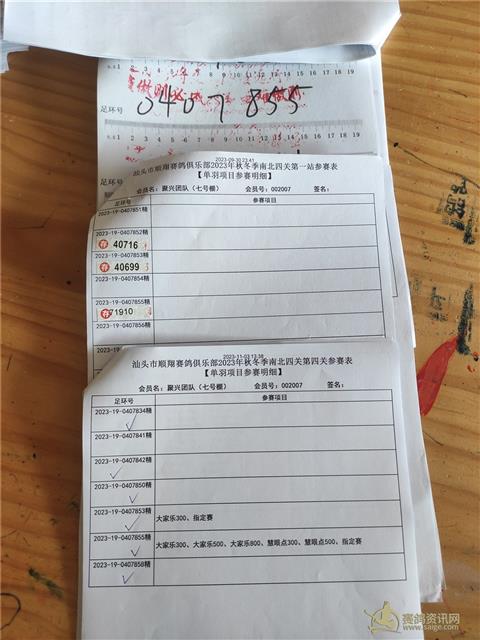 足环号
0407855
足环号
2023-09-30 23:41
汕头市顺翔赛鸽俱乐部2023年秋冬季南北四关第一站参赛表
【单羽项目参赛明细】
会员名：聚兴团队（七号棚） 会员号：002007 签名：
足环号 参赛项目
2023-19-0407851精
2023-19-0407852精
存 40716
2023-19-0407853精
存 40699
2023-19-0407854精
2023-19-0407855精
存 71910
2023-19-0407856精
2023-11-03 13:38
汕头市顺翔赛鸽俱乐部2023年秋冬季南北四关第四关参赛表
【单羽项目参赛明细】
会员名：聚兴团队（七号棚） 会员号：002007 签名：
足环号 参赛项目
2023-19-0407834精
2023-19-0407841精
2023-19-0407842精
2023-19-0407850精
2023-19-0407853精 大家乐300、指定赛
2023-19-0407855精 大家乐300、大家乐500、大家乐800、慧眼点300、慧眼点500、指定赛
2023-19-0407858精
赛鸽资讯网
www.saige.com